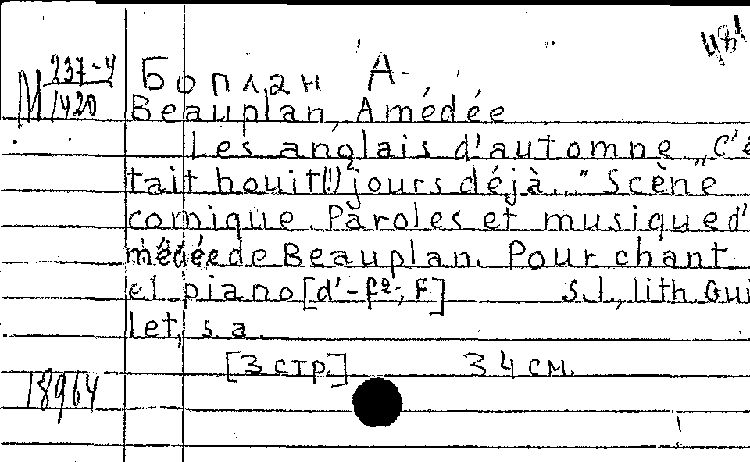 М 237-4
1420
Боплан А.
Beauplan, Amédée
Les anglais d'automne „C'é
tait houit(!) jours déjà..." Scène
comique. Paroles et musique d'
médée de Beauplan. Pour chant
et piano [d'-f²; F] S.l., lith. Gui
let, s.a.
[3 стр.] 34 см.
18964